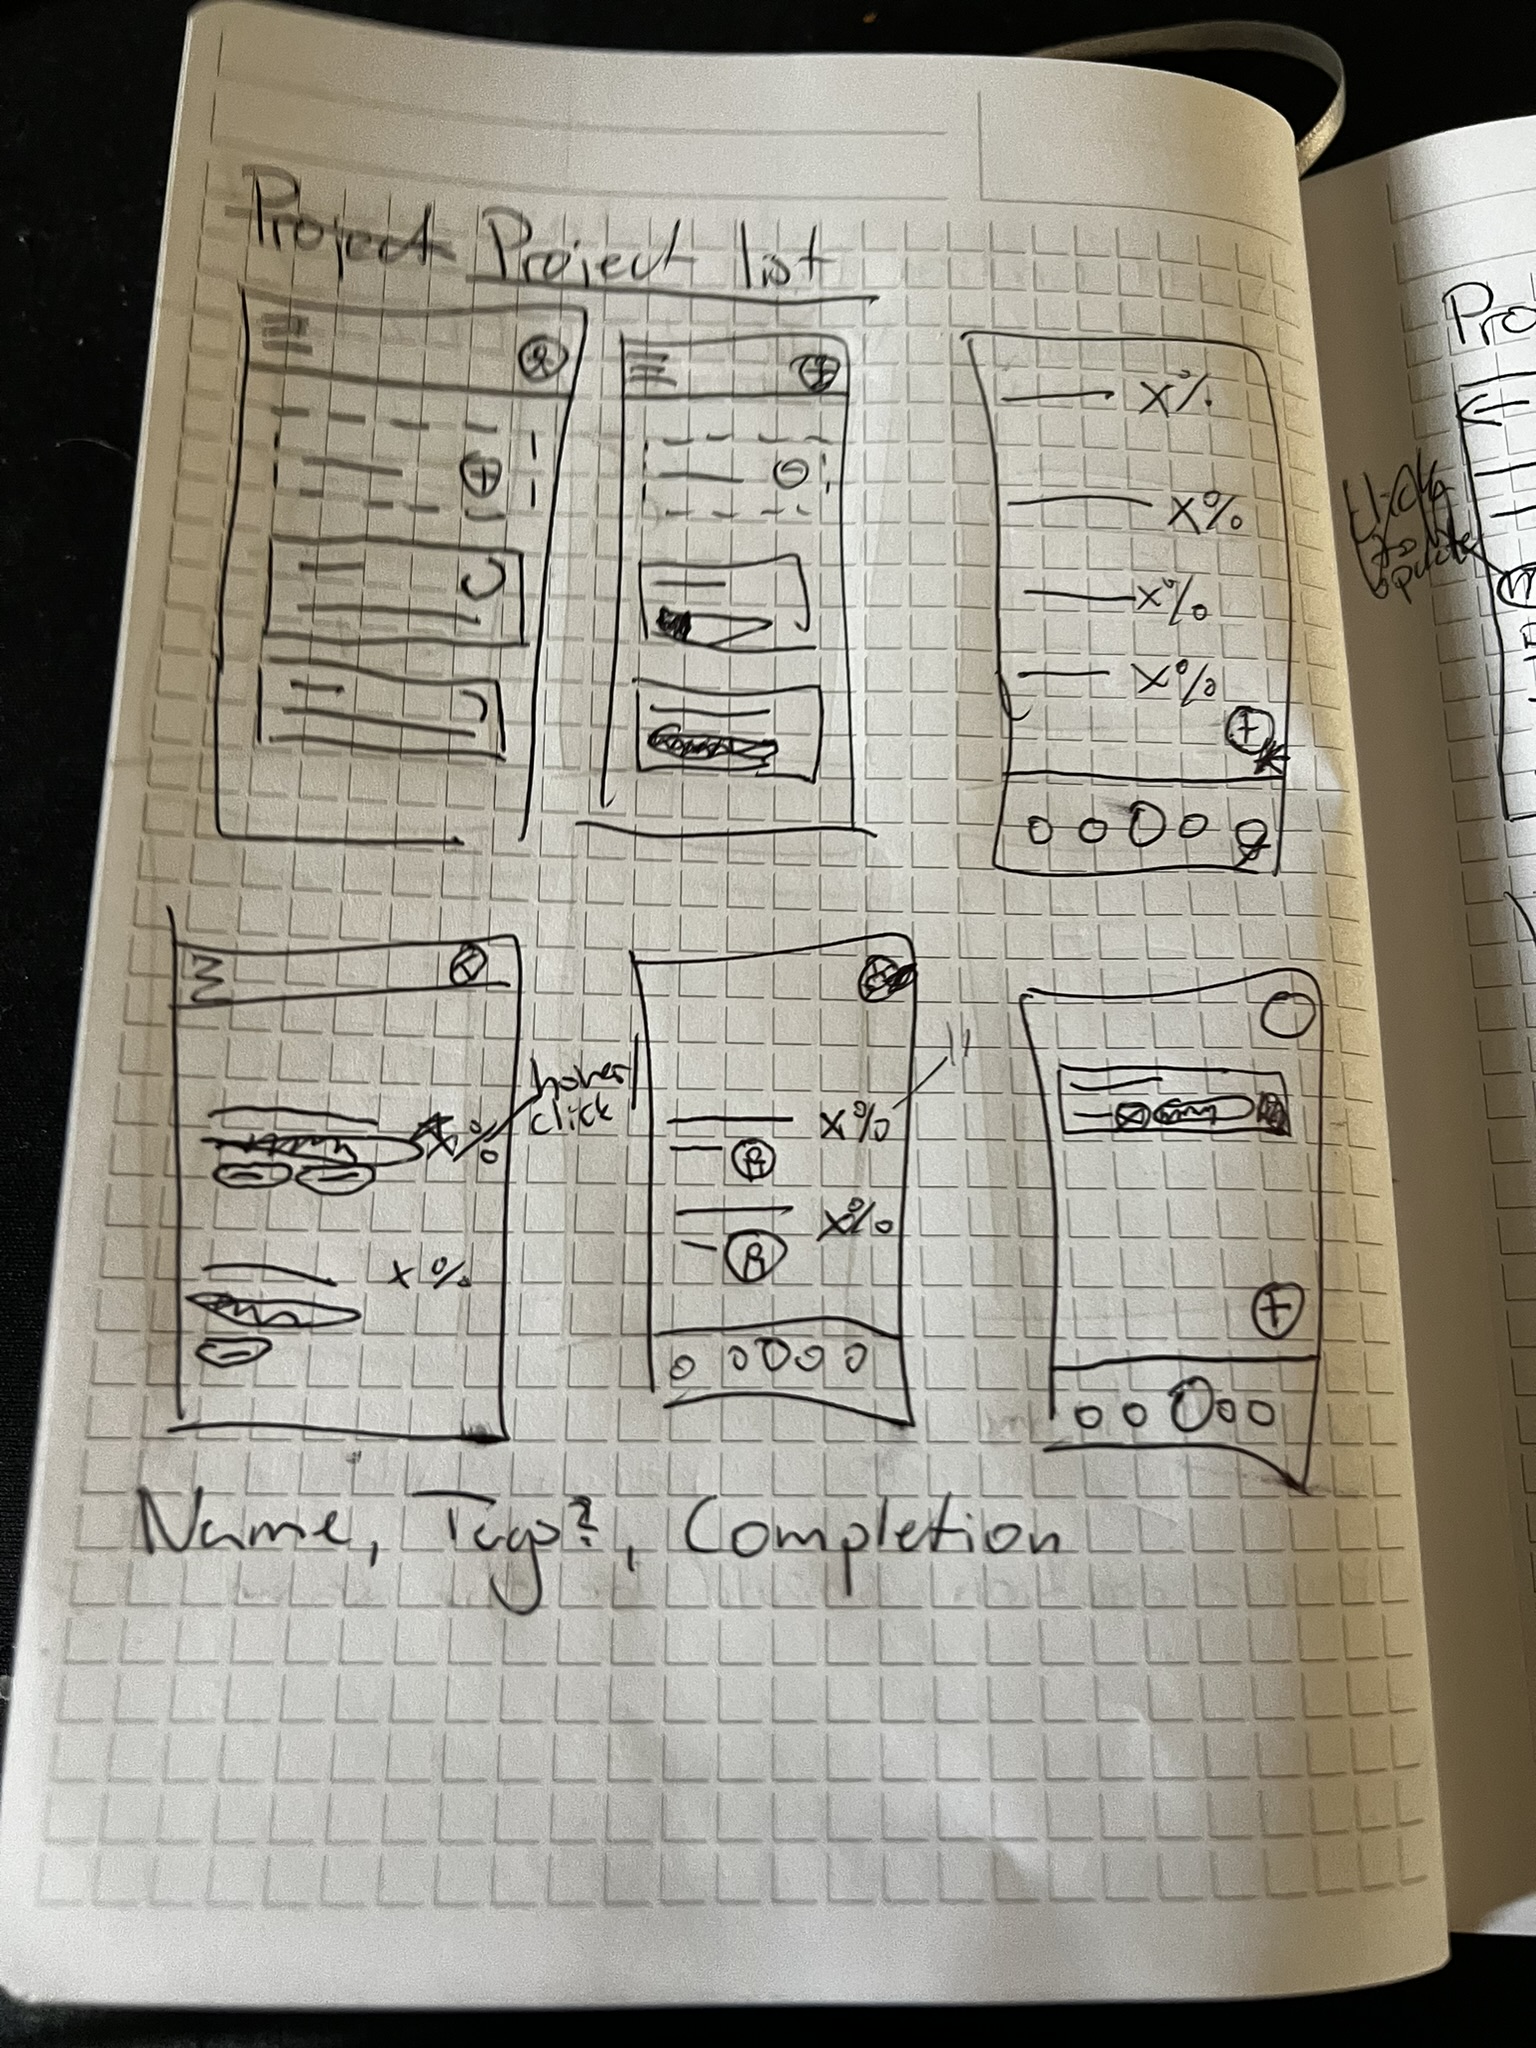 Project Project list
X%
X%
X%
X%
hover/
click
X%
X%
X%
R
X%
R
Name, Tags?, Completion
Pro
click
to
update